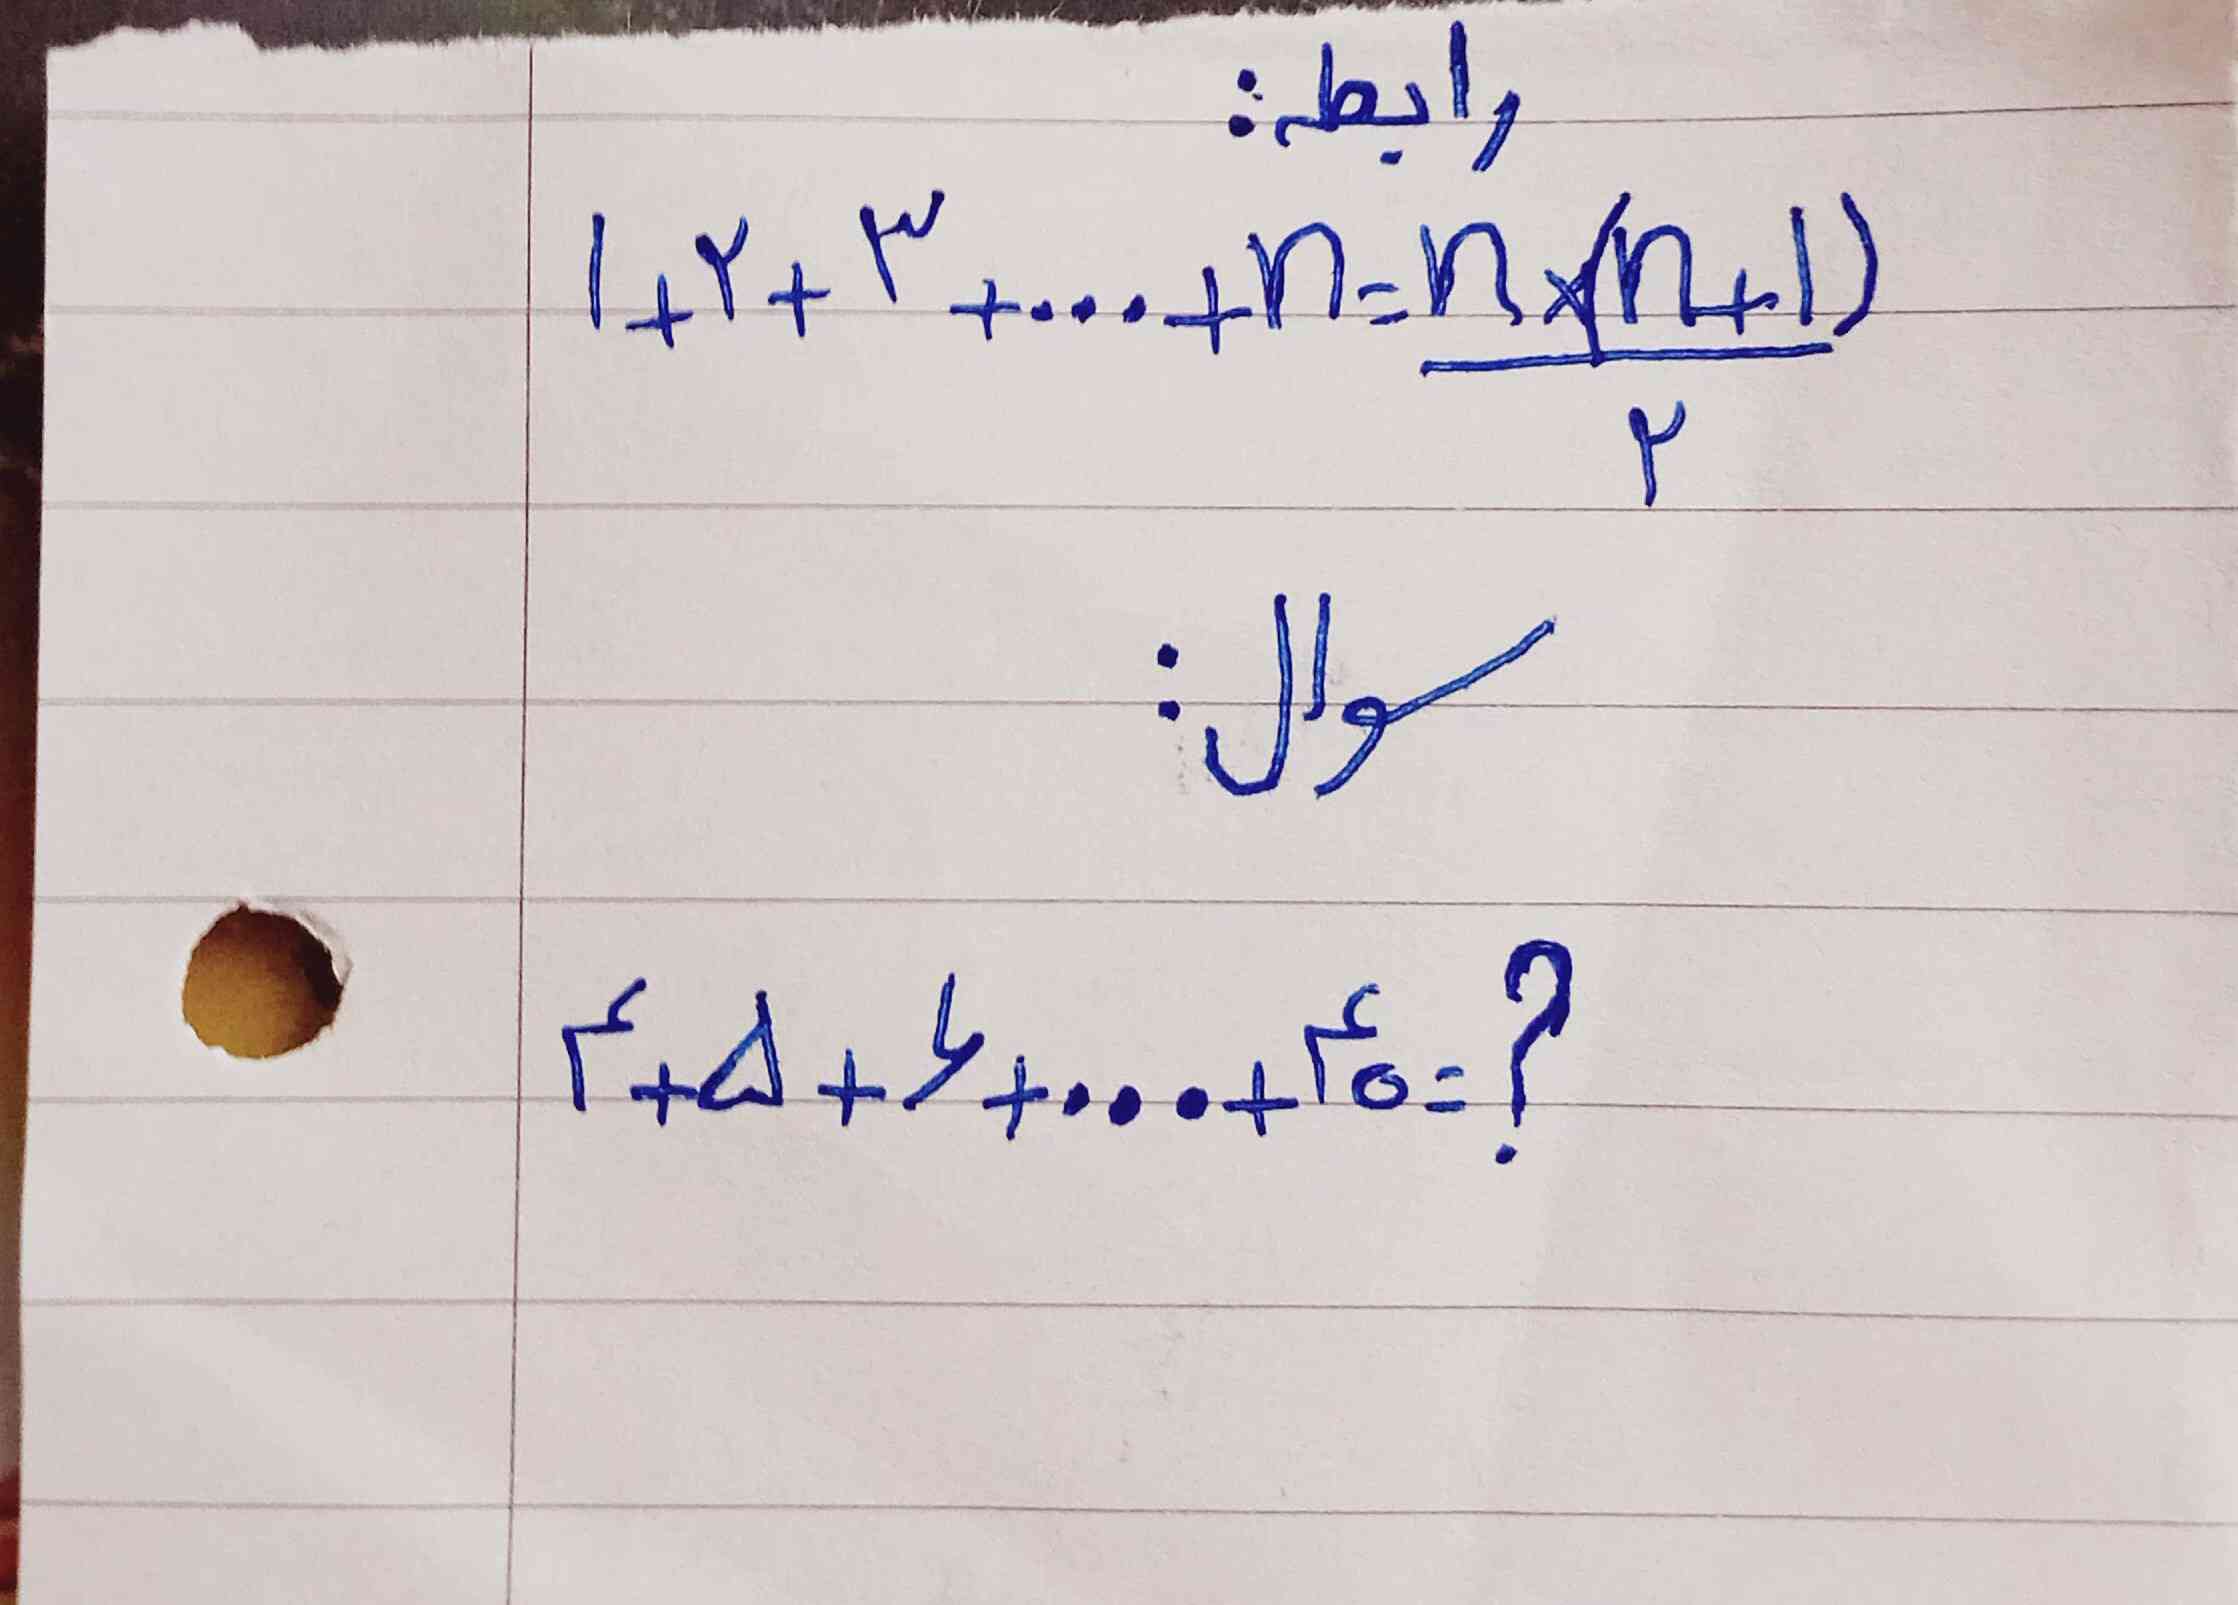 رابطه:
۱+۲+۳+...+n=n×(n+۱)
۲
سوال:
۴+۵+۶+...+۴۰=?